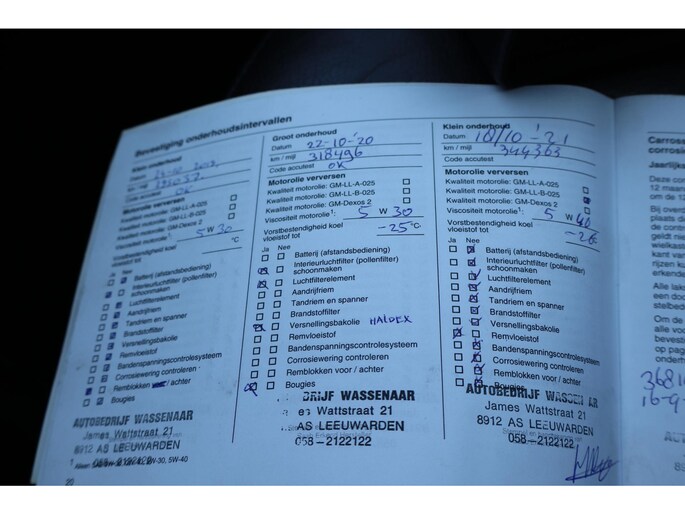 Bevestiging onderhoudsintervallen
Klein onderhoud
Datum
km / mijl
Code accutest OK
Motorolie verversen
Kwaliteit motorolie: GM-LL-A-025
Kwaliteit motorolie: GM-LL-B-025
Kwaliteit motorolie: GM-Dexos 2
Viscositeit motorolie¹: 5 W 30
Vorstbestendigheid koel
vloeistof tot °C
Ja Nee
Batterij (afstandsbediening)
Interieurluchtfilter (pollenfilter)
schoonmaken
Luchtfilterelement
Aandrijfriem
Tandriem en spanner
Brandstoffilter
Versnellingsbakolie
Remvloeistof
Bandenspanningscontrolesysteem
Corrosiewering controleren
Remblokken / achter
Bougies
AUTOBEDRIJF WASSENAAR
James Wattstraat 21
8912 AS LEEUWARDEN
058-2122122
20
Groot onderhoud
Datum 22-10-'20
km / mijl 318496
Code accutest OK
Motorolie verversen
Kwaliteit motorolie: GM-LL-A-025
Kwaliteit motorolie: GM-LL-B-025
Kwaliteit motorolie: GM-Dexos 2
Viscositeit motorolie¹: 5 W 30
Vorstbestendigheid koel
vloeistof tot -25°C
Ja Nee
Batterij (afstandsbediening)
Interieurluchtfilter (pollenfilter)
schoonmaken
Luchtfilterelement
Aandrijfriem
Tandriem en spanner
Brandstoffilter
Versnellingsbakolie HALDEX
Remvloeistof
Bandenspanningscontrolesysteem
Corrosiewering controleren
Remblokken voor / achter
Bougies
DRIJF WASSENAAR
es Wattstraat 21
AS LEEUWARDEN
058-2122122
Klein onderhoud
Datum
km / mijl 344363
Code accutest
Motorolie verversen
Kwaliteit motorolie: GM-LL-A-025
Kwaliteit motorolie: GM-LL-B-025
Kwaliteit motorolie: GM-Dexos 2
Viscositeit motorolie¹: 5 W 40
Vorstbestendigheid koel
vloeistof tot
Ja Nee
Batterij (afstandsbediening)
Interieurluchtfilter (pollenfilter)
schoonmaken
Luchtfilterelement
Aandrijfriem
Tandriem en spanner
Brandstoffilter
Versnellingsbakolie
Remvloeistof
Bandenspanningscontrolesysteem
Corrosiewering controleren
Remblokken voor / achter
Bougies
AUTOBEDRIJF WASSEN AR
James Wattstraat 21
8912 AS LEEUWARDEN
058-2122122
Carross
corrosi
Jaarlijks
Deze con
12 maan
om de 12